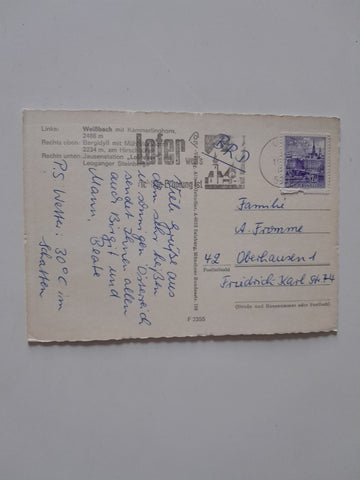 Links: Weißbach mit Kammerlinghorn,
2486 m
Rechts oben: Bergidyll mit
2234 m, am
Rechts unten: Jausenstation
Leoganger Steinberge
Lofer
BRD
Viele Grüße aus
dem sehr heißen
sonnigen Österreich
sendet Ihnen allen
auch Birgit und
Mann, Beate
PS Wetter: 30°C im
Schatten
Familie
A. Fromme
42 Oberhausen 1
Postleitzahl
Friedrich-Karl Str. 74
(Straße und Hausnummer oder Postfach)
F 3355